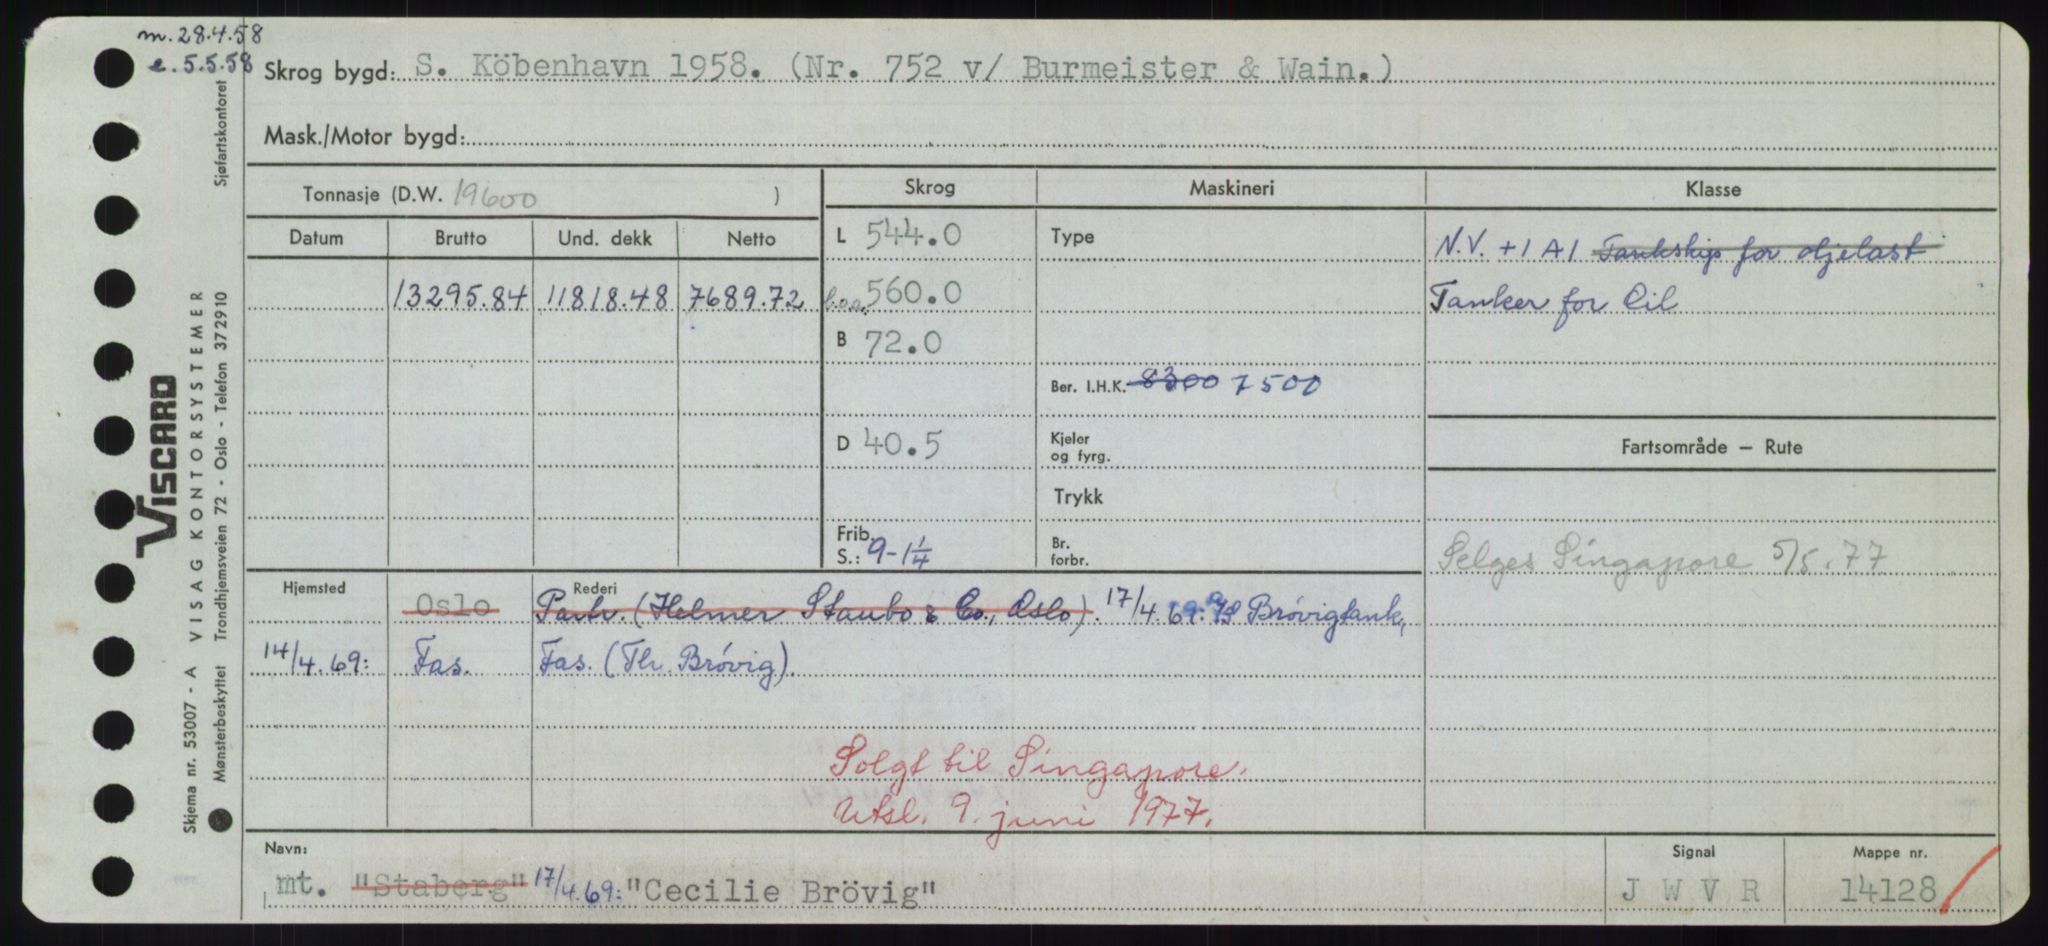 m. 28.4.58
e. 5.5.58
Skrog bygd: S. Köbenhavn 1958. (Nr. 752 v/ Burmeister & Wain.)
Mask./Motor bygd:
Tonnasje (D.W. 19600 )
Skrog
Maskineri
Klasse
Datum
Brutto
Und. dekk
Netto
L 544.0
Type
N.V. +1 A1 Tankskip for oljelast
13295.84
11818.48
7689.72
l.o.a. 560.0
Tanker for Oil
B 72.0
Ber. I.H.K. 8300 7500
D 40.5
Kjeler
og fyrg.
Fartsområde — Rute
Trykk
Frib.
S.: 9-1¼
Br.
forbr.
Selges Singapore 5/5.77
Hjemsted
Oslo
Rederi
Partr. (Helmer Staubo & Co., Oslo). 17/4.69: A/S Brövigtank,
14/4.69:
Fas.
Fas. (Th. Brövig).
Solgt til Singapore.
Utsl. 9. juni 1977.
Navn:
mt. "Staberg" 17/4.69: "Cecilie Brövig"
Signal
J W V R
Mappe nr.
14128
Skjema nr. 53007 - A VISAG KONTORSYSTEMER
VISCARD
Mønsterbeskyttet Trondhjemsveien 72 - Oslo - Telefon 372910 Sjøfartskontoret